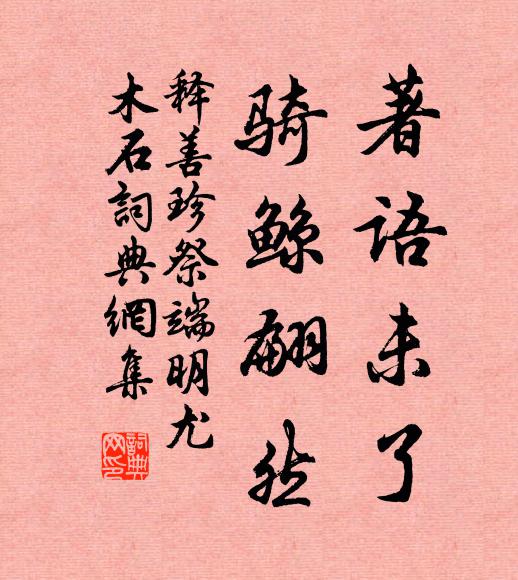 著语未了
骑鲸翩然
释善珍祭端明尤
木石词典網集
詞典
网印